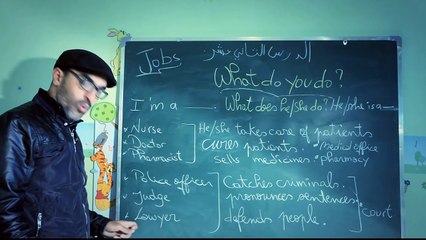 Jobs الدرس الثاني عشر:
What do you do?
I'm a ____. What does he/she do? He/she is a ____
• Nurse He/she takes care of patients
• Doctor cures patients. • medical office
• Pharmacist sells medicines • pharmacy
• Police officer Catches criminals.
• Judge pronounces sentences.
• Lawyer defends people. court